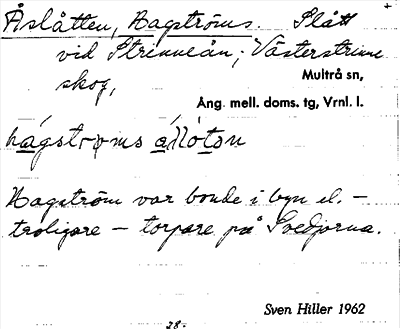 Åslåtten, Hagströms. Slått
vid Strinneån; Västerstrinne
skog,
Multrå sn,
Ång. mell. doms. tg, Vrnl. l.
hágstrɷms á̀llótən
Hagström var bonde i byn el. –
troligare – torpare på Svedjorna.
Sven Hiller 1962
28.